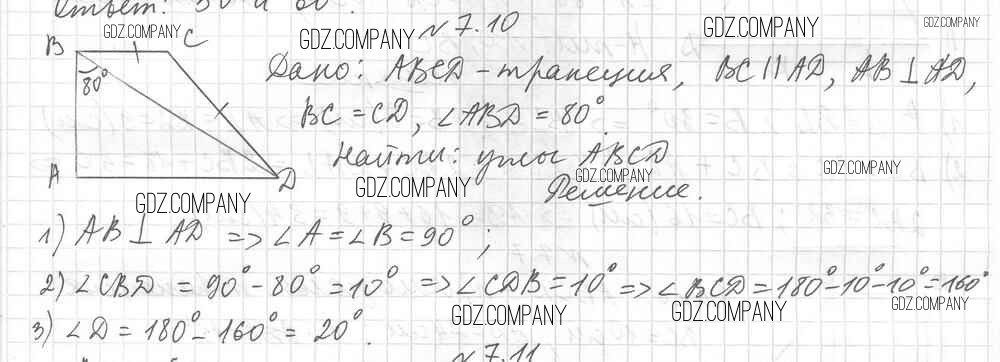 Ответ: 30° и 60°.
B GDZ.COMPANY C GDZ.COMPANY №7.10 GDZ.COMPANY GDZ.COMPANY
80° Дано: ABCD - трапеция, BC || AD, AB ⊥ AD,
BC = CD, ∠ABD = 80°.
Найти: углы ABCD
A D GDZ.COMPANY GDZ.COMPANY GDZ.COMPANY
GDZ.COMPANY Решение.
1) AB ⊥ AD => ∠A = ∠B = 90°;
2) ∠CBD = 90° - 80° = 10° => ∠CDB = 10° => ∠BCD = 180° - 10° - 10° = 160°
GDZ.COMPANY GDZ.COMPANY GDZ.COMPANY
3) ∠D = 180° - 160° = 20°.
№7.11